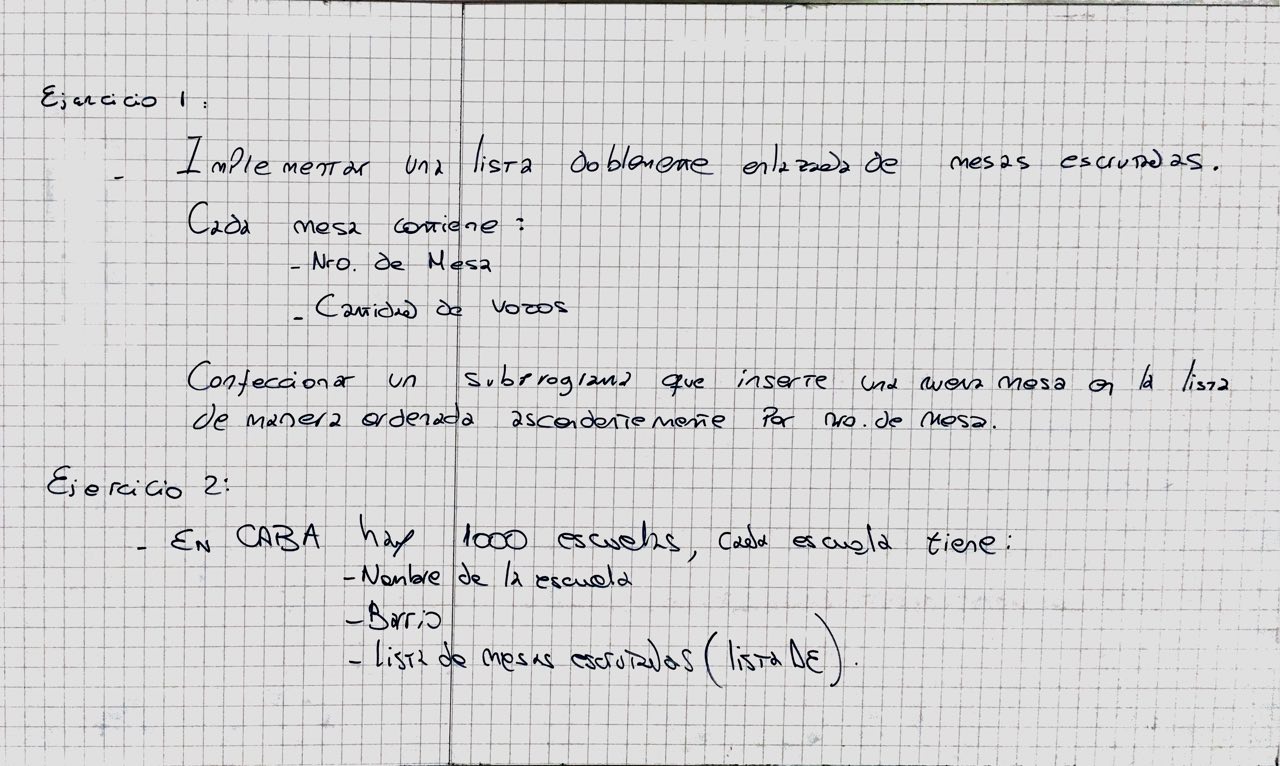 Ejercicio 1:
- Implementar una lista doblemente enlazada de mesas escrutadas.
Cada mesa contiene:
- Nro. de Mesa
- Cantidad de votos
Confeccionar un subprograma que inserte una nueva mesa en la lista
de manera ordenada ascendentemente por nro. de mesa.
Ejercicio 2:
- EN CABA hay 1000 escuelas, cada escuela tiene:
- Nombre de la escuela
- Barrio
- Lista de mesas escrutadas (lista DE).